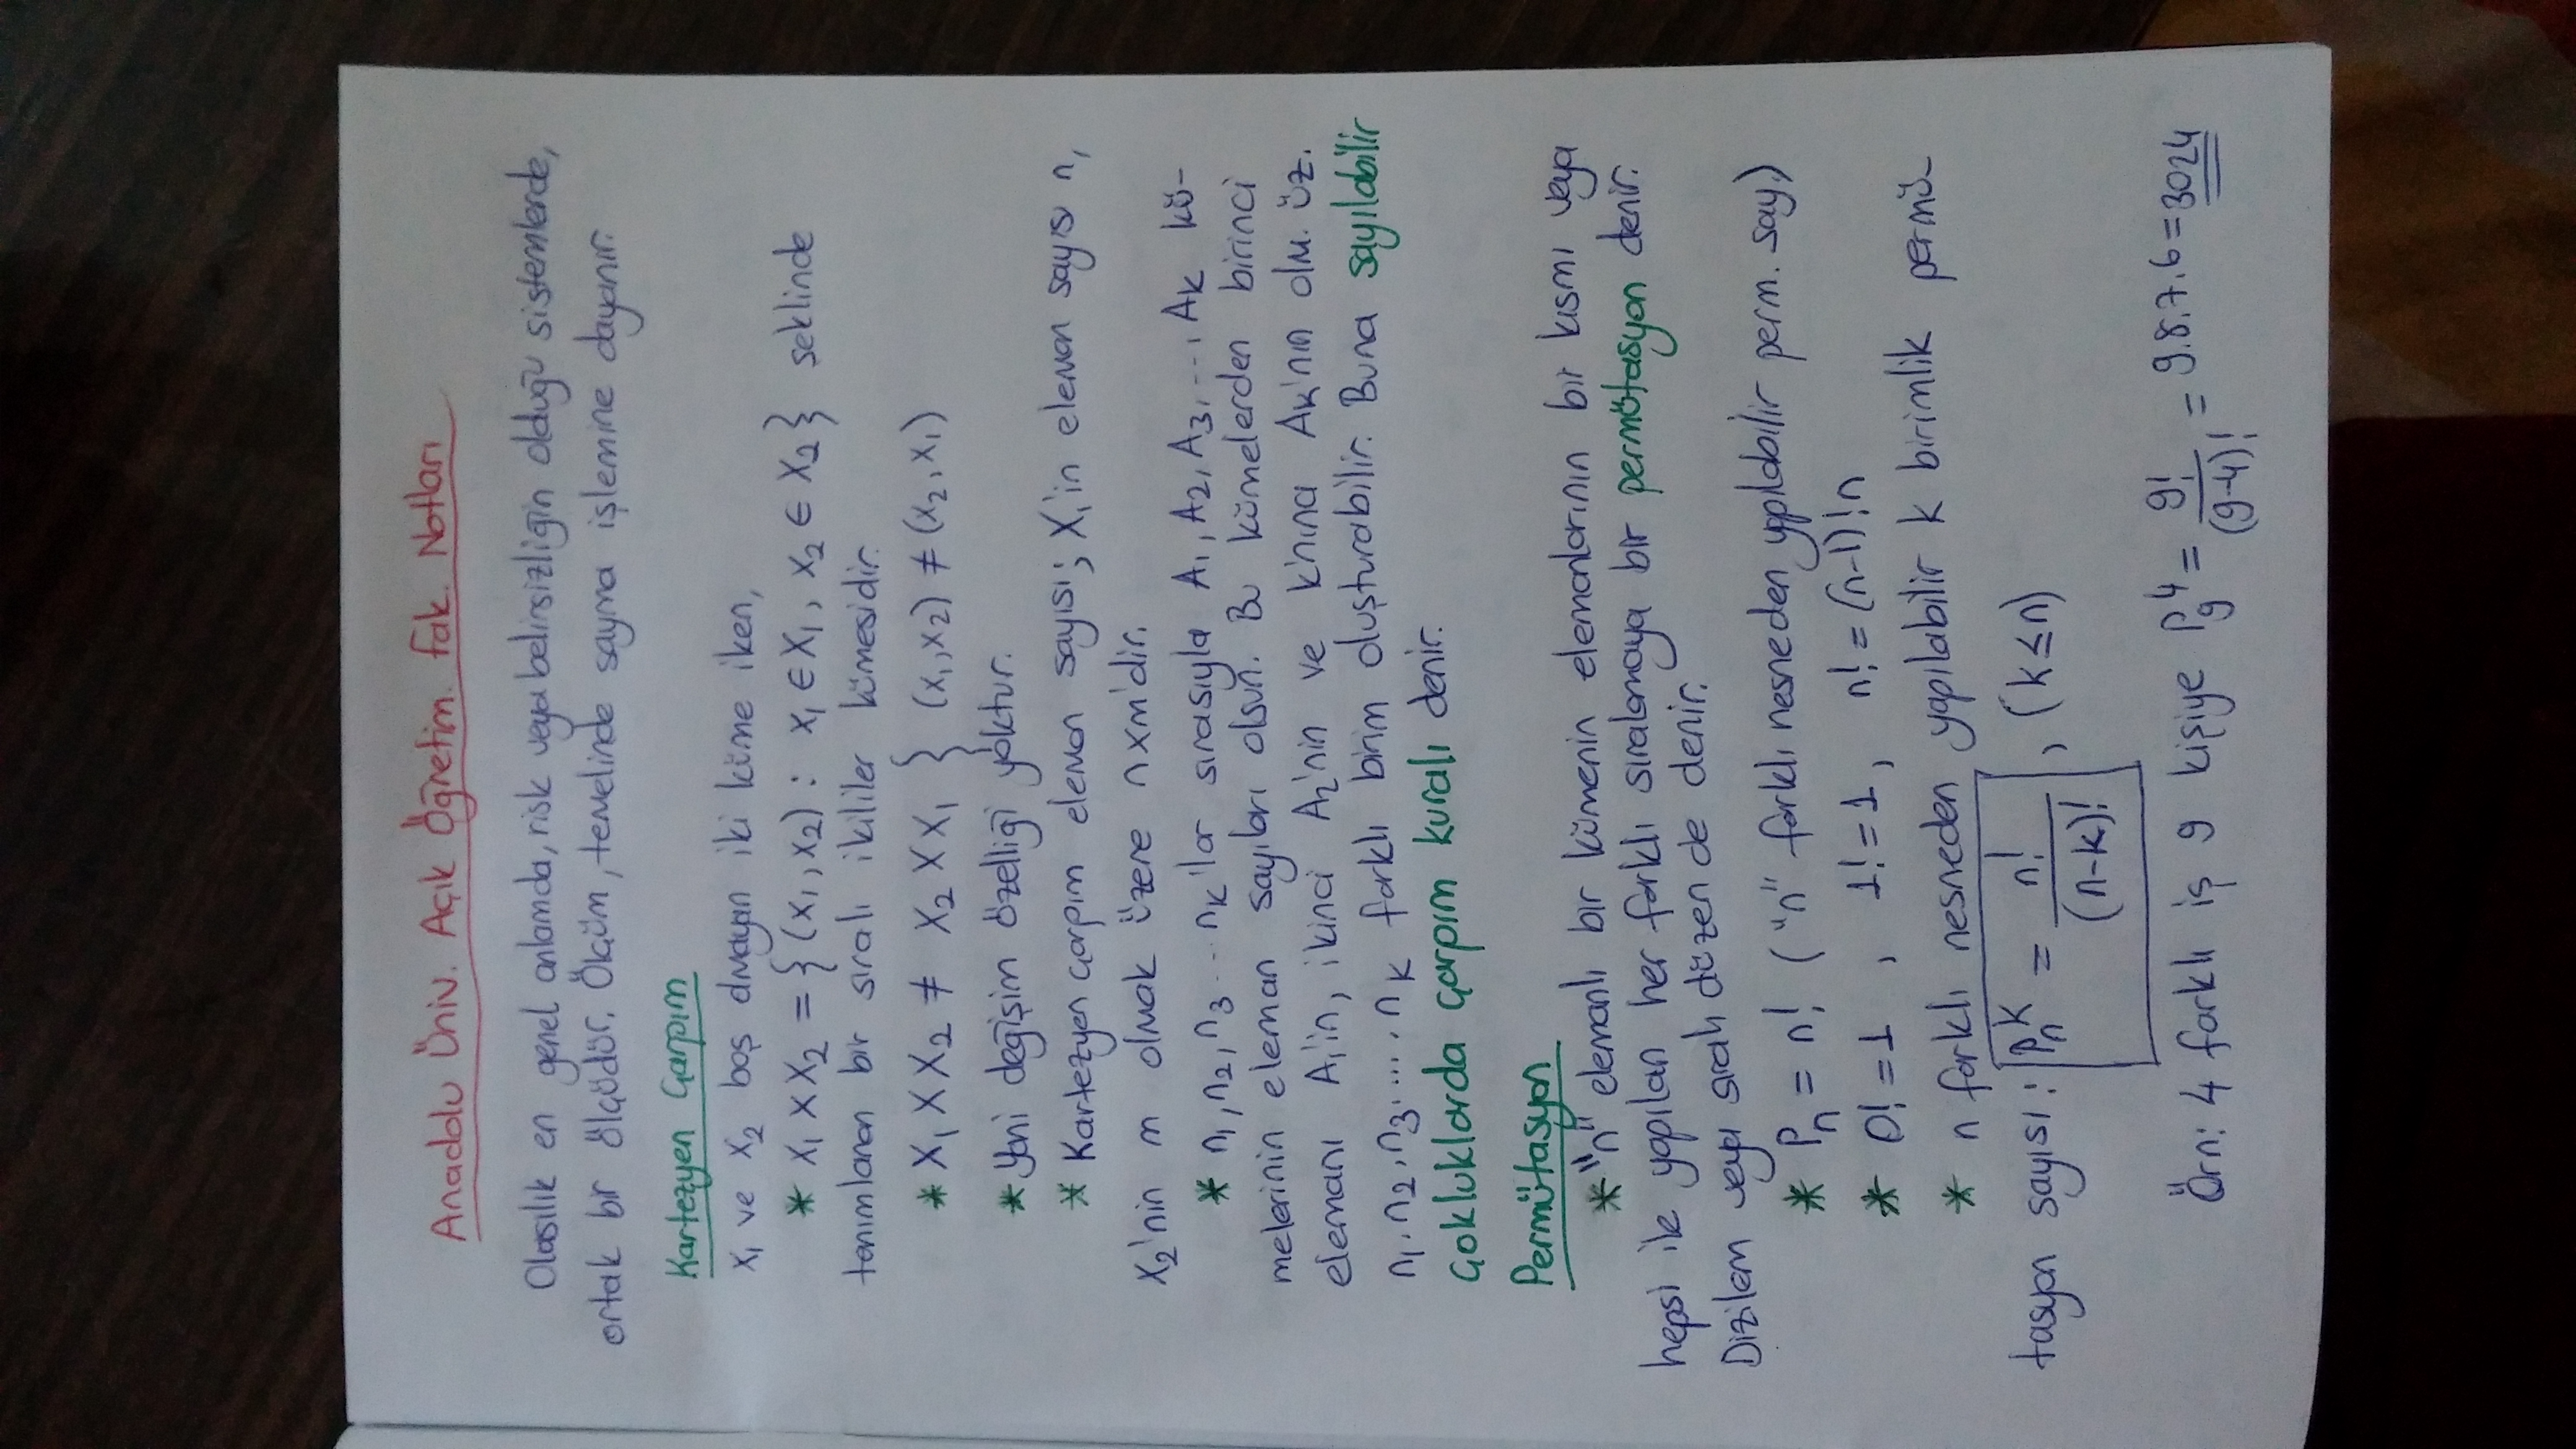 Anadolu Üniv. Açık Öğretim. Fak. Notları
Olasılık en genel anlamda, risk veya belirsizliğin olduğu sistemlerde,
ortak bir ölçüdür. Ölçüm, temelinde sayma işlemine dayanır.
Kartezyen Çarpım
X₁ ve X₂ boş olmayan iki küme iken,
* X₁ x X₂ = {(x₁, x₂) : x₁ ∈ X₁, x₂ ∈ X₂} şeklinde
tanımlanan bir sıralı ikililer kümesidir.
* X₁ X X₂ ≠ X₂ X X₁ } (x₁,x₂) ≠ (x₂,x₁)
* Yani değişim özelliği yoktur.
* Kartezyen çarpım eleman sayısı; X₁'in eleman sayısı n,
X₂'nin m olmak üzere nxm'dir.
* n₁, n₂, n₃ ... nₖ'lar sırasıyla A₁, A₂, A₃, ..., Aₖ kü-
melerinin eleman sayıları olsun. Bu kümelerden birinci
elemanı A₁'in, ikinci A₂'nin ve k'nıncı Aₖ'nın olm. üz.
n₁.n₂.n₃.....nₖ farklı birim oluşturabilir. Buna sayılabilir
çokluklarda çarpım kuralı denir.
Permütasyon
* "n" elemanlı bir kümenin elemanlarının bir kısmı veya
hepsi ile yapılan her farklı sıralamaya bir permütasyon denir.
Dizilem veya sıralı düzen de denir.
* Pₙ = n! ("n" farklı nesneden yapılabilir perm. say.)
* 0! = 1 , 1! = 1, n! = (n-1)!n
* n farklı nesneden yapılabilir k birimlik permü-
tasyon sayısı: Pₙᵏ = n!/(n-k)! , (k ≤ n)
Örn: 4 farklı iş 9 kişiye P₉⁴ = 9!/(9-4)! = 9.8.7.6 = 3024